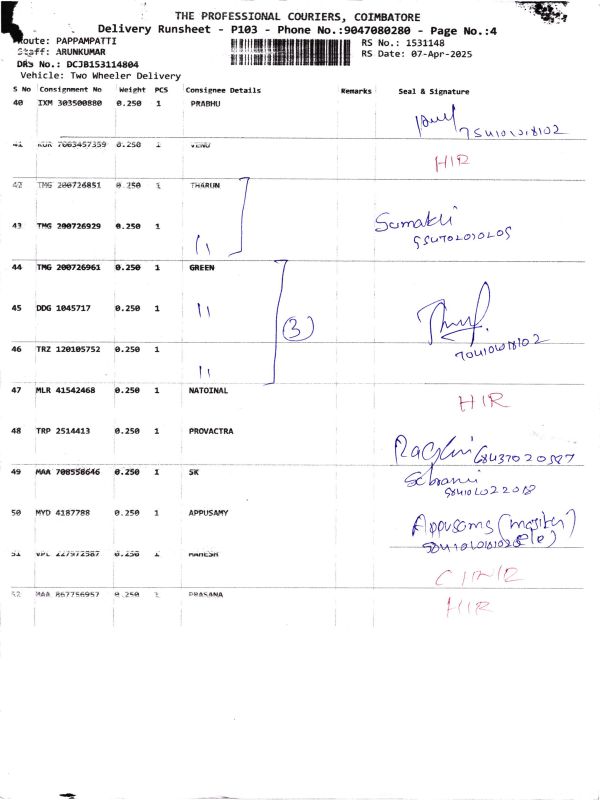 THE PROFESSIONAL COURIERS, COIMBATORE
Delivery Runsheet - P103 - Phone No.:9047080280 - Page No.:4
Route: PAPPAMPATTI
RS No.: 1531148
Staff: ARUNKUMAR
RS Date: 07-Apr-2025
DRS No.: DCJB153114804
Vehicle: Two Wheeler Delivery
S No Consignment No Weight PCS Consignee Details Remarks Seal & Signature
40 IXM 303500880 0.250 1 PRABHU
41 KUR 7003457359 0.250 1 VENU HIR
42 TMG 200726851 0.250 1 THARUN
43 TMG 200726929 0.250 1 11
44 TMG 200726961 0.250 1 GREEN
45 DDG 1045717 0.250 1 11 3
46 TRZ 120105752 0.250 1 11
47 MLR 41542468 0.250 1 NATOINAL HIR
48 TRP 2514413 0.250 1 PROVACTRA
49 MAA 708558646 0.250 1 SK
50 MYD 4187788 0.250 1 APPUSAMY
51 VPL 227972587 0.250 1 MAHESH
52 MAA 867756957 0.250 1 PRASANA HIR